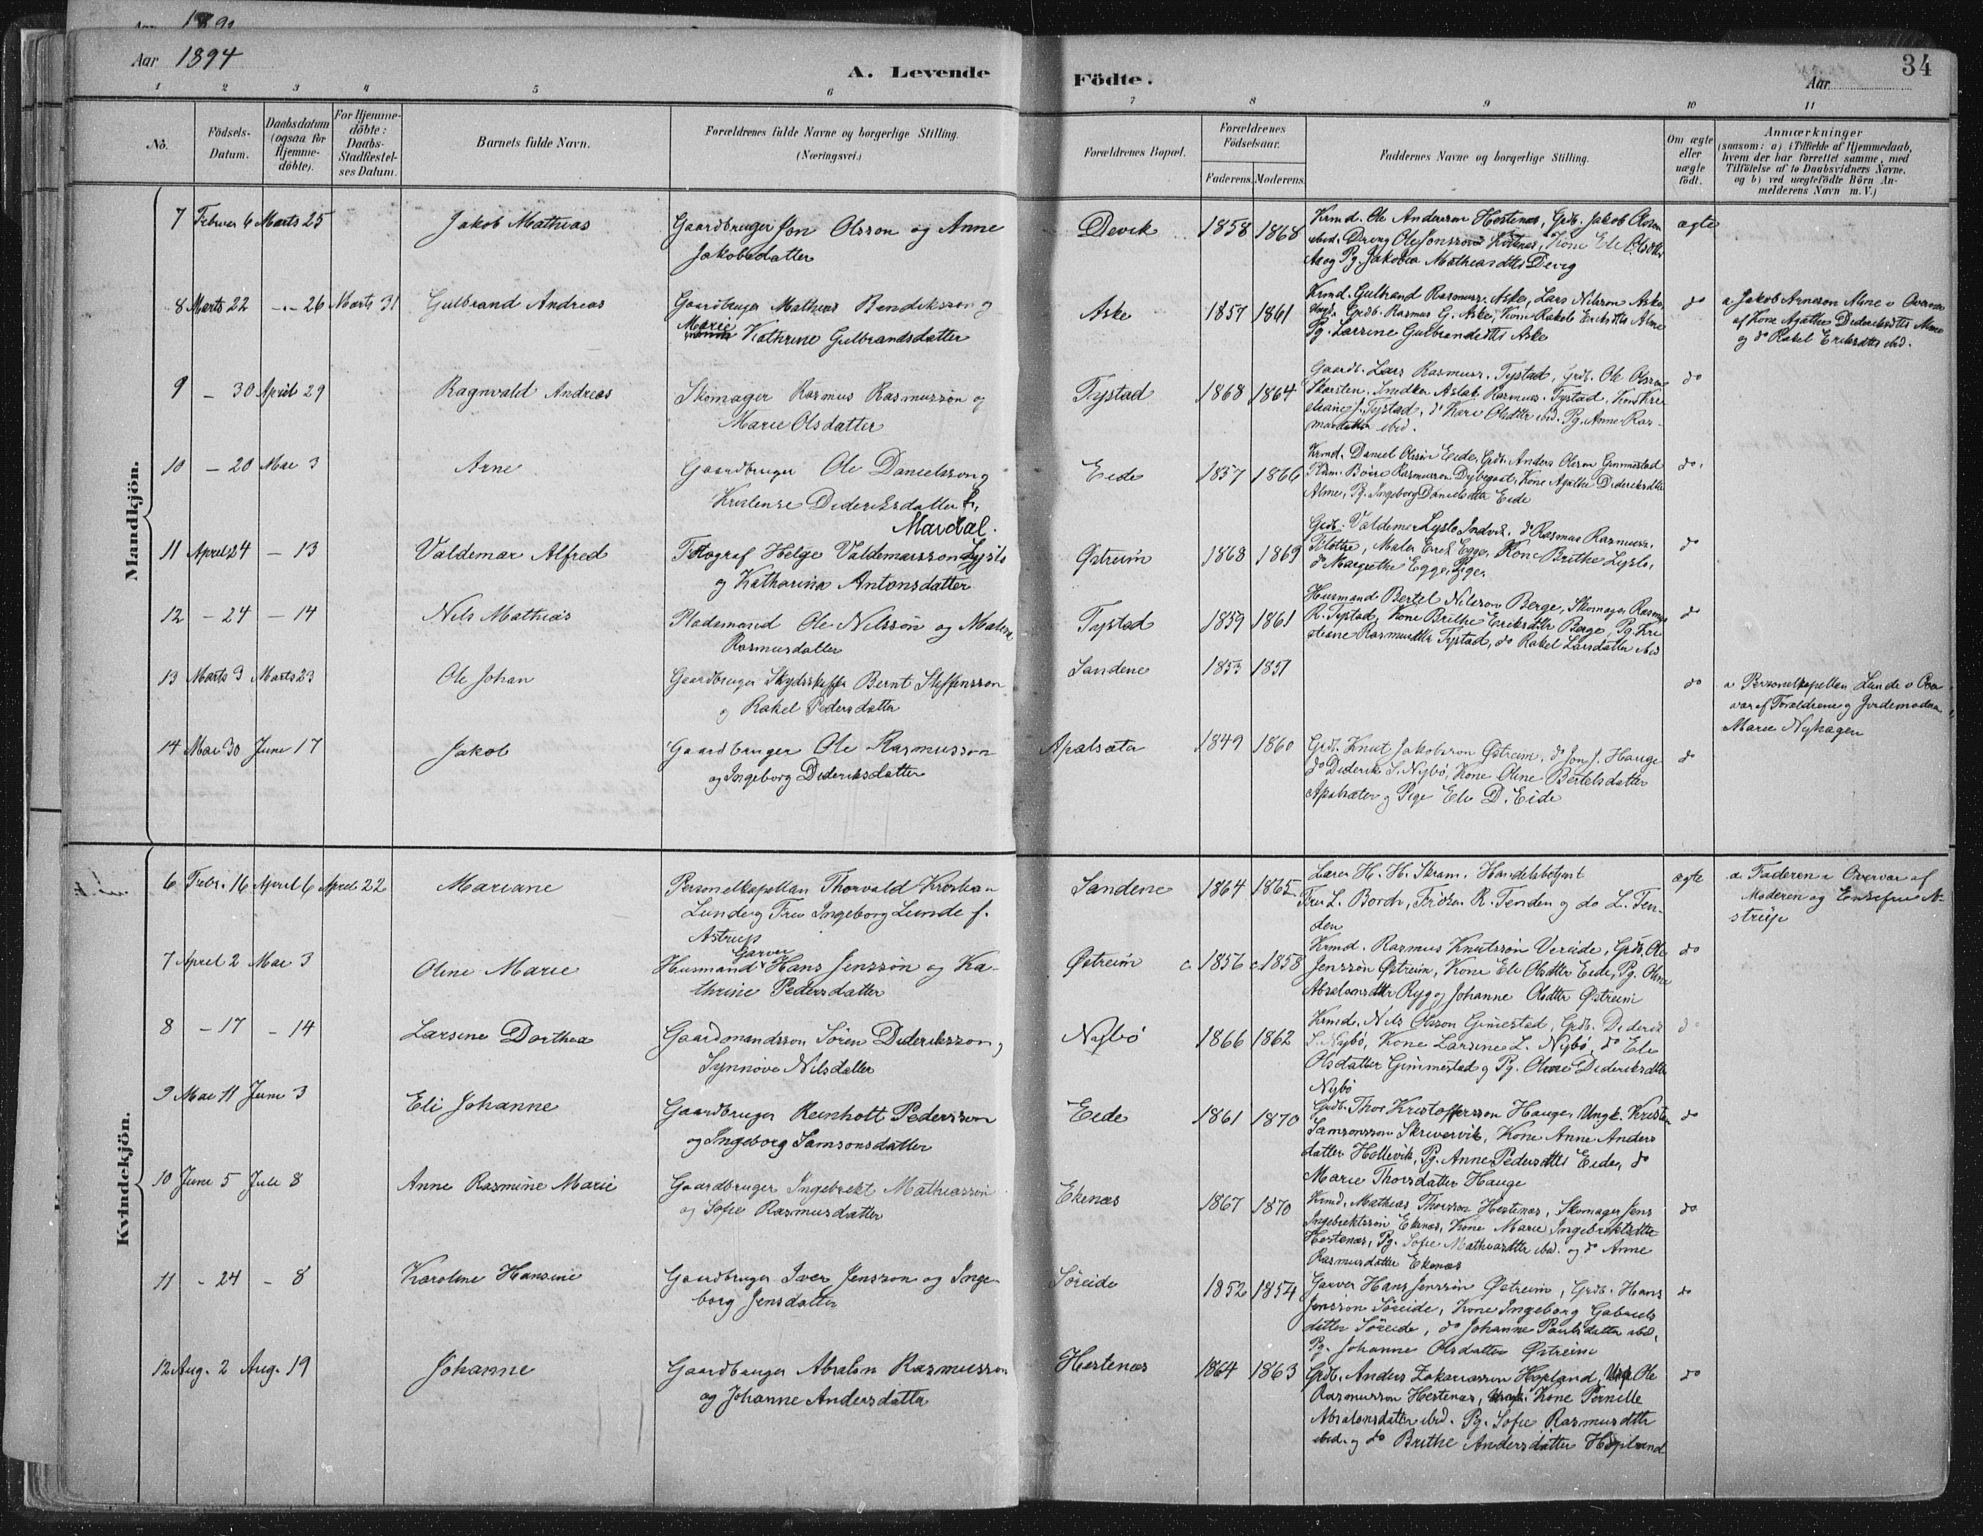 Aar 1894
A. Levende
Födte.
Aar
34
1 2 3 4 5 6 7 8 9 10 11
No.
Födsels-
Datum.
Daabsdatum
(ogsaa for
Hjemme-
döbte).
For Hjemme-
döbte:
Daabs-
Stadfæstel-
ses Datum.
Barnets fulde Navn.
Forældrenes fulde Navne og borgerlige Stilling.
(Næringsvei.)
Forældrenes Bopæl.
Forældrenes
Födselsaar.
Faderens. Moderens.
Faddernes Navne og borgerlige Stilling.
Om ægte
eller
uægte
födt.
Anmærkninger
(saasom: a) i Tilfælde af Hjemmedaab,
hvem der har forrettet samme, med
Tilföielse af to Daabsvidners Navne,
og b) ved uægtefödte Börn An-
melderens Navn m. V.)
Mandkjön.
7 Februar 6 Marts 25
Jakob Mathias
Gaardbruger Jon Olsson og Anne
Jakobsdatter
Devik
1858 1868
Krmd. Ole Andersson Hestenæs, Grdb. Jakob Olsson
ibid. Dreng Ole Jonsson Hestenæs, Kone Eli
Pg. Jakobea Mathiasdtts Devig
ægte
8 Marts 22 -"- 26 Marts 31
Gulbrand Andreas
Gaardbruger Mathias Bendiksson og
Marie
Kathrine Gulbrandsdatter
Aske
1857 1861
Krmd. Gulbrand Rasmuss. Aske, Lars Nilsson Aske
Grdb. Rasmus G. Aske, Kone Rakel Eriksdtts Alme
Pg. Larsine Gulbrandsdtts Aske
do
a. Jakob Arneson Alme o Overvar
af Kone Agathe Dideriksdtts Alme
og do Rakel Eriksdtts ibid.
9 - 30 April 29
Ragnvald Andreas
Skomager Rasmus Rasmusson og
Marie Olsdatter
Tystad
1868 1864
Gaardb. Lars Rasmuss. Tystad, Grdb. Ole Olsson
Skarsten, Snedker Aslak Rasmuss. Tystad, Kone Kri
stiane J. Tystad, do Kari Olsdttr ibid. Pg. Anne Ras-
musdatter ibid.
do
10 - 20 Mai 3
Arne
Gaardbruger Ole Danielsson og
Kristense Dideriksdatter f.
Mardal.
Eide
1857 1866
Krmd. Daniel Olsson Eide, Grdb. Anders Olsson Gimmestad
Rasmusson Dybegaat, Kone Agathe Dideriksdttr
Alme, Pg. Ingeborg Danielsdttr Eide
do
11 April 24 - 13
Valdemar Alfred
Fotograf Helge Valdemarsson Lyslo
og Katharina Antonsdatter
Østreim
1868 1869
Grdb. Valdemar Lyslo Indvik, do Rasmus Rasmuss.
Maler Erek Egge, Kone Brithe Lyslo,
do Margrethe Egge, Pige,
do
12 - 24 - 14
Nils Mathias
Pladsmand Ole Nilsson og Malena
Rasmusdatter
Tystad
1859 1861
Husmand Bertel Nilsson Berge, Skomager Rasmus
R. Tystad, Kone Brithe Eriksdtter Berge, Pg. Kri
stiane Rasmusdtter Tystad, do Rakel Larsdatter ibid
do
13 Marts 3 Marts 23
Ole Johan
Gaardbruger Skydsskaffer Bernt Steffensson
og Rakel Pedersdatter
Sandene
1853 1851
do
a Personelkapellan Lunde o Over
var af Forældrene og Jordemoderen
Marie Nyhagen
14 Mai 30 Juni 17
Jakob
Gaardbruger Ole Rasmusson
og Ingeborg Dideriksdatter
Apalsæta
1849 1860
Grdb. Knut Jakobsson Østreim, do Jon J. Hauge
do Diderik S. Nybø, Kone Oline Bertelsdatter
Apalsæter og Pige Eli D. Eide
do
Kvindekjön.
6 Febr. 16 April 6 April 22
Mariane
Personelkapellan Thorvald Kristian
Lunde og Fru Ingeborg Lunde f.
Astrup
Sandene
1864 1865
Lærer H. H. Skram, Handelsbetjent
Fru L. Bordv, Frøken R. Fenden og do L. Fen-
den
ægte
a. Faderen o Overvar af
Moderen og Enkefru A-
strup
7 April 2 Mai 3
Oline Marie
Garver
Husmand Hans Jensson og Ka-
thrine Pedersdatter
Østreim
c. 1856 c. 1858
Krmd. Rasmus Knutsson Vereide, Grdb. Ole
Jensson Østreim, Kone Eli Olsdtter Eide, Pg. Oline
Absalonsdttr Ryg og Johanne Olsdtter Østreim
do
8 - 17 - 14
Larsine Dorthea
Gaardmandssøn Søren Dideriksson og
Synnøve Nilsdatter
Nybø
1866 1862
Krmd. Nils Olsson Gimestad, Grdb. Diderik
S. Nybø, Kone Larsine L. Nybø, do Eli
Olsdatter Gimmestad og Pg. Oline Dideriksdttr
Nybø
do
9 Mai 11 Juni 3
Eli Johanne
Gaardbruger Reinholt Pedersson
og Ingeborg Samsonsdatter
Eide
1861 1870
Grdb. Thor Kristoffersson Hauge, Ungk. Kristen
Samsonsson Skrivervik, Kone Anne Anders
datter Hellevik, Pg. Anne Pedersdtts Eide, do
Marie Thorsdatter Hauge
do
10 Juni 5 Juli 8
Anne Rasmine Marie
Gaardbruger Ingebrekt Mathiasson
og Sofie Rasmusdatter
Ekenæs
1867 1870
Krmd. Mathias Thorsson Hestenæs, Skomager Jens
Ingebrektsson Ekenæs, Kone Marie Ingebrektsdtter
Hestenæs, Pg. Sofie Mathiasdtter ibid. og do Anne
Rasmusdatter Ekenæs
do
11 - 24 - 8
Karoline Hansine
Gaardbruger Iver Jensson og Inge-
borg Jensdatter
Søreide
1852 1854
Garver Hans Jensson Østreim, Grdb. Hans
Jensson Søreide, Kone Ingeborg Gabriels
datter Søreide, do Johanne Paulsdatter ibid.
Pg. Johanne Olsdatter Østreim
do
12 Aug. 2 Aug. 19
Johanne
Gaardbruger Absalon Rasmusson
og Johanne Andersdatter
Hestenæs
1864 1863
Grdb. Anders Zakariasson Hopland, Ungk. Ole
Rasmusson Hestenæs, Kone Pernille
Absalonsdatter ibid. Pg. Sofie Rasmusdttr
ibid. og do Brithe Andersdatter Hopland
do